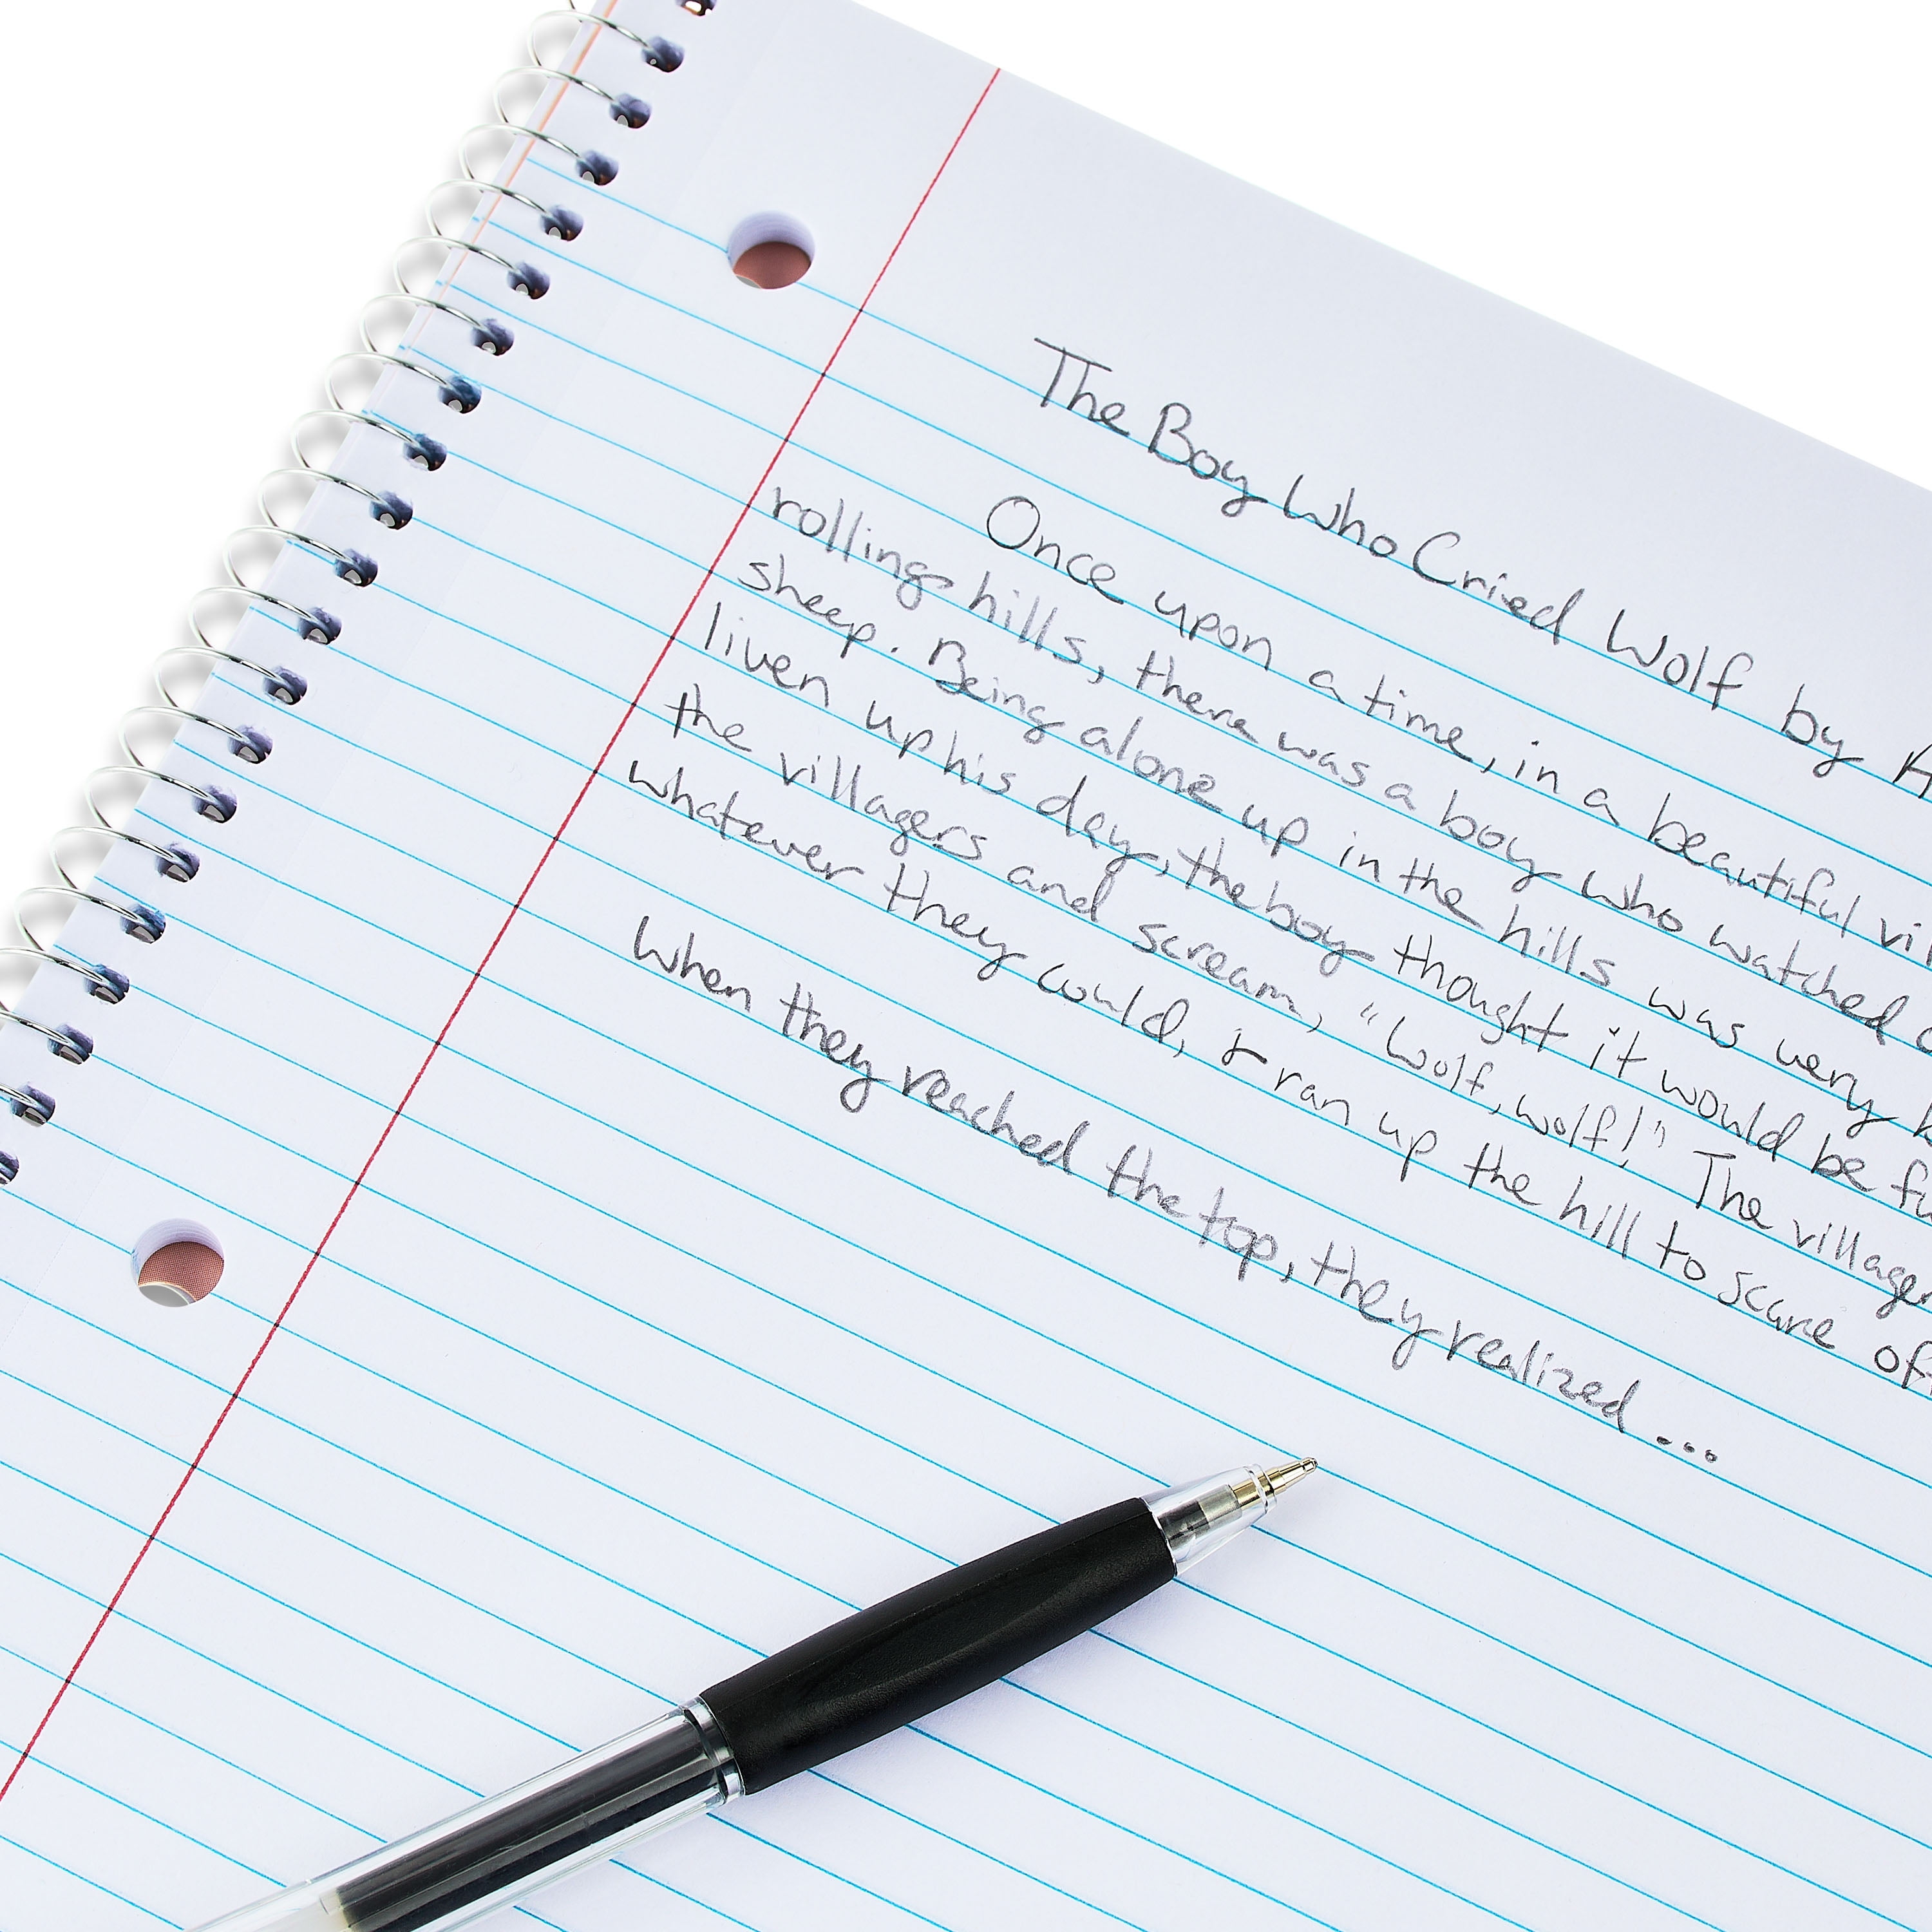 The Boy Who Cried Wolf by
Once upon a time, in a beautiful
rolling hills, there was a boy who watched
sheep. Being alone up in the hills was very
liven up his day, the boy thought it would be
the villagers and scream, "Wolf, wolf!" The
whatever they could, & ran up the hill to scare
When they reached the top, they realized...